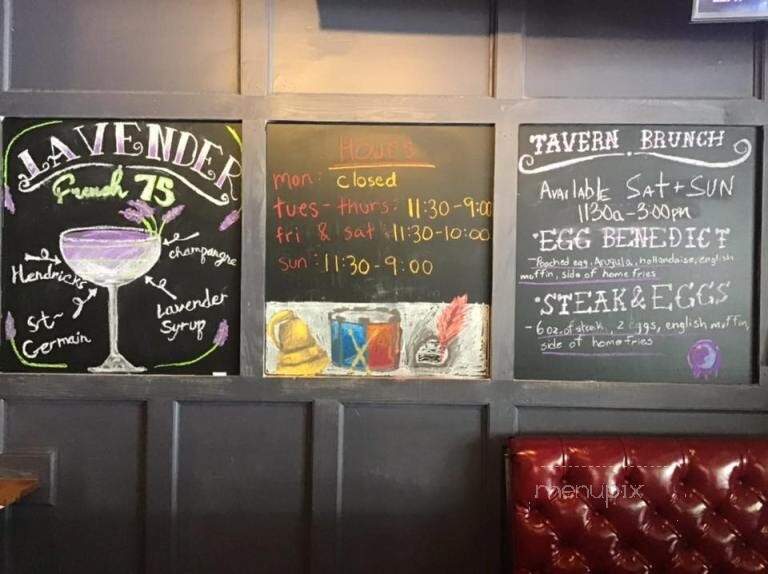 LAVENDER
French 75
champangne
Hendricks
St-
Germain
Lavender
Syrup
HOURS
mon: closed
tues-thurs: 11:30-9:00
fri & sat: 11:30-10:00
sun: 11:30-9:00
TAVERN BRUNCH
AVAILABLE SAT + SUN
1130a-3:00pm
·EGG BENEDICT
-Poached egg, Arugula, hollandaise, english
muffin, side of home fries
·STEAK & EGGS
- 6 oz. of steak, 2 Eggs, english muffin,
side of home fries
menupix